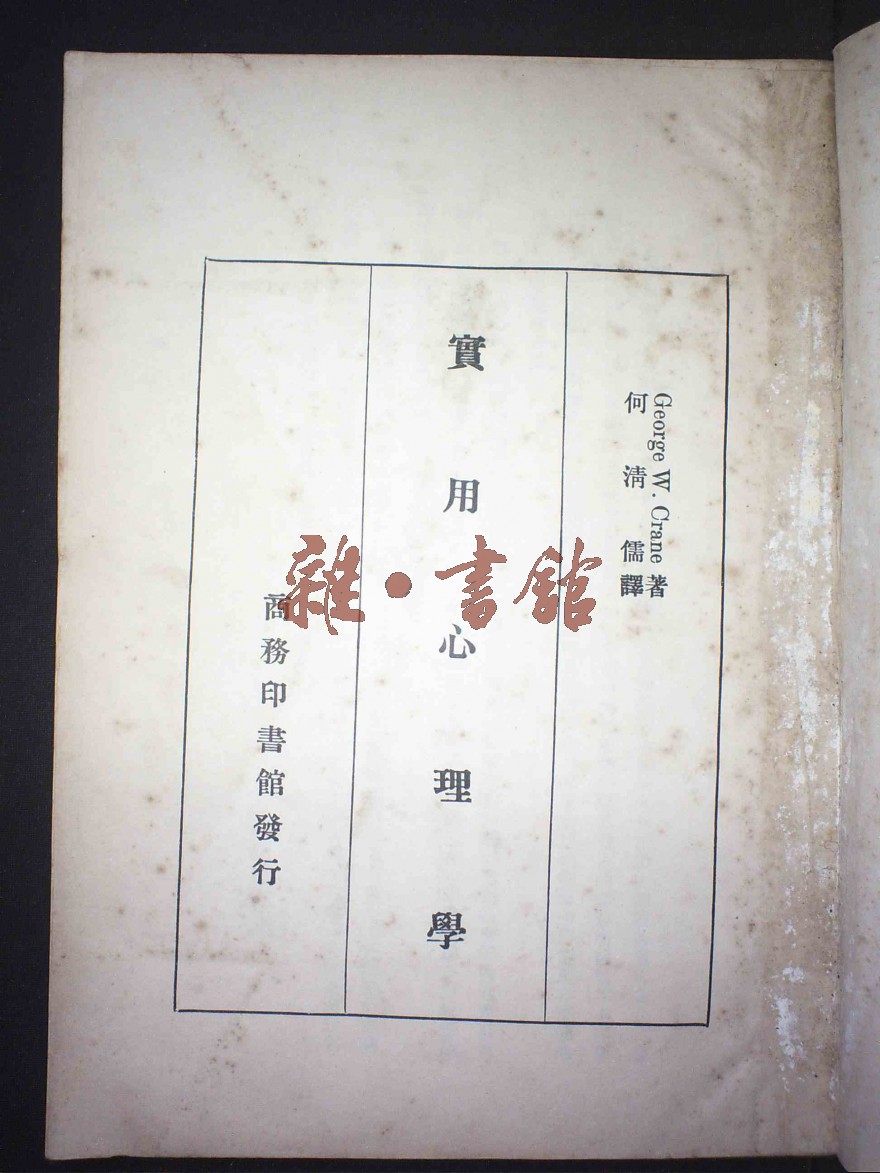 George W. Crane 著
何清儒譯
實用心理學
商務印書館發行
雜·書館